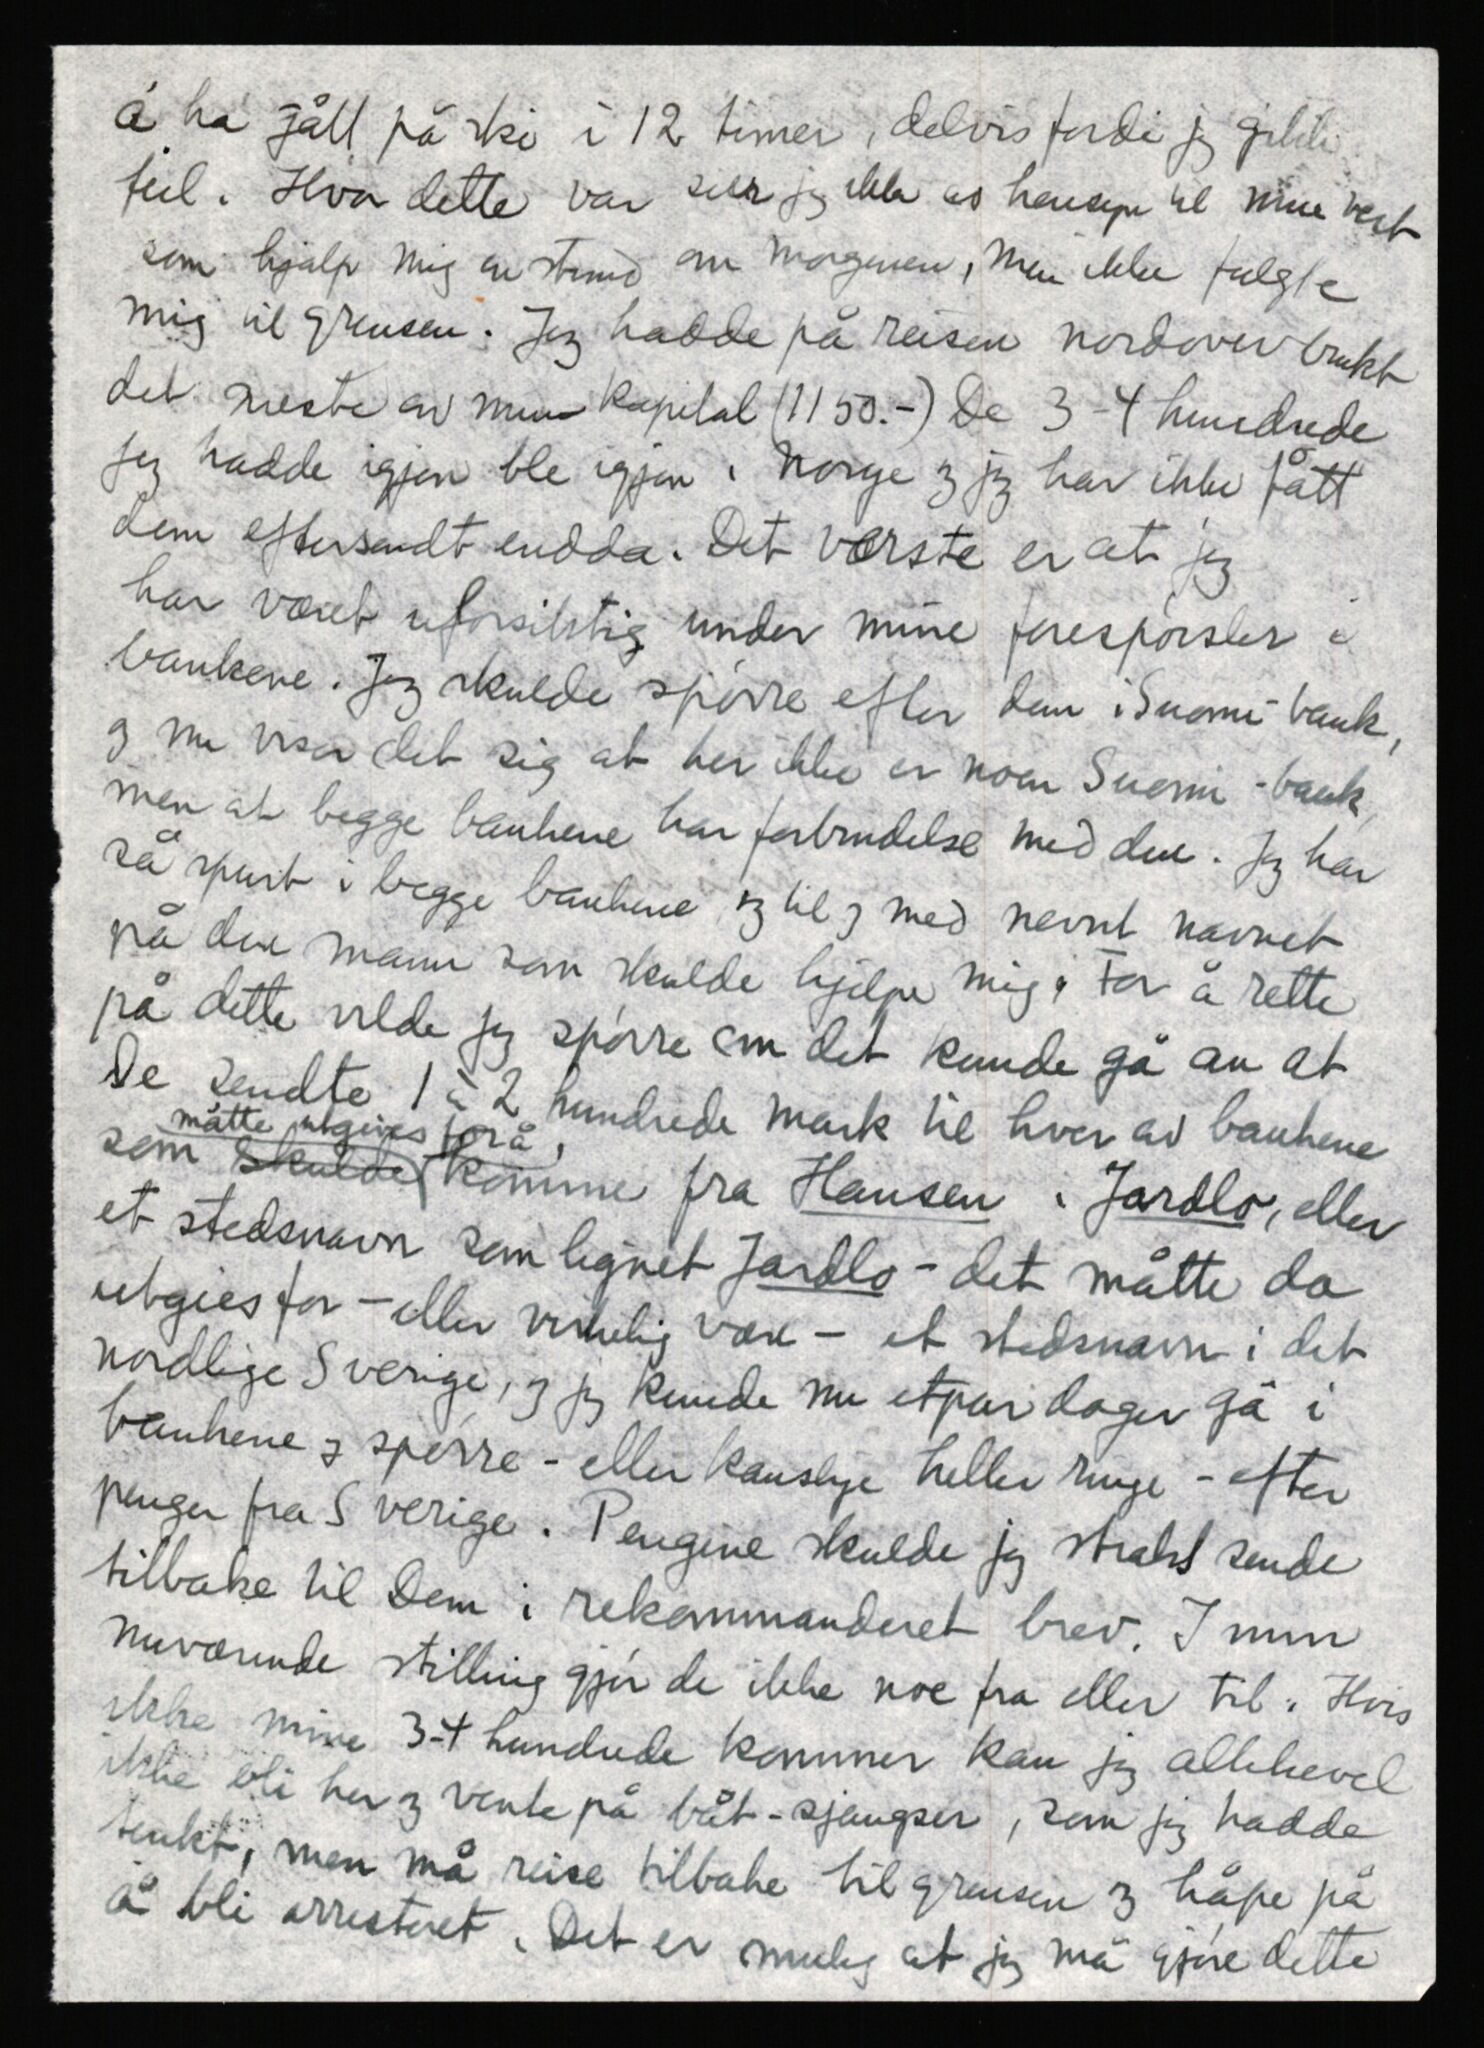 å ha gått på ski i 12 timer, delvis fordi jeg gikk
feil. Hvor dette var sier jeg ikke av hensyn til min vert
som hjalp mig en stund om morgenen, men ikke fulgte
mig til grensen. Jeg hadde på reisen nordover brukt
det meste av min kapital (1150.-) De 3-4 hundrede
jeg hadde igjen ble igjen i Norge og jeg har ikke fått
dem eftersendt endda. Det værste er at jeg
har været uforsiktig under mine forespørsler i
bankene. Jeg skulde spørre efter dem i Suomi-bank,
og nu viser det sig at her ikke er noen Suomi-bank,
men at begge bankene har forbindelse med den. Jeg har
så spurt i begge bankene og til og med nevnt navnet
på den mann som skulde hjelpe mig. For å rette
på dette vilde jeg spørre om det kunde gå an at
De sendte 1 à 2 hundrede mark til hver av bankene
måtte utgives for å
som skulde komme fra Hansen i Jardlo, eller
et stedsnavn som lignet Jardlo - det måtte da
utgies for - eller virkelig være - et stedsnavn i det
nordlige Sverige, og jeg kunde nu etpar dager gå i
bankene og spørre - eller kanskje heller ringe - efter
penger fra Sverige. Pengene skulde jeg straks sende
tilbake til Dem i rekommanderet brev. I min
nuværende stilling gjør de ikke noe fra eller til. Hvis
ikke mine 3-4 hundrede kommer kan jeg allikevel
ikke bli her og vente på båt-sjangser, som jeg hadde
tenkt, men må reise tilbake til grensen og håpe på
å bli arresteret. Det er mulig at jeg må gjøre dette